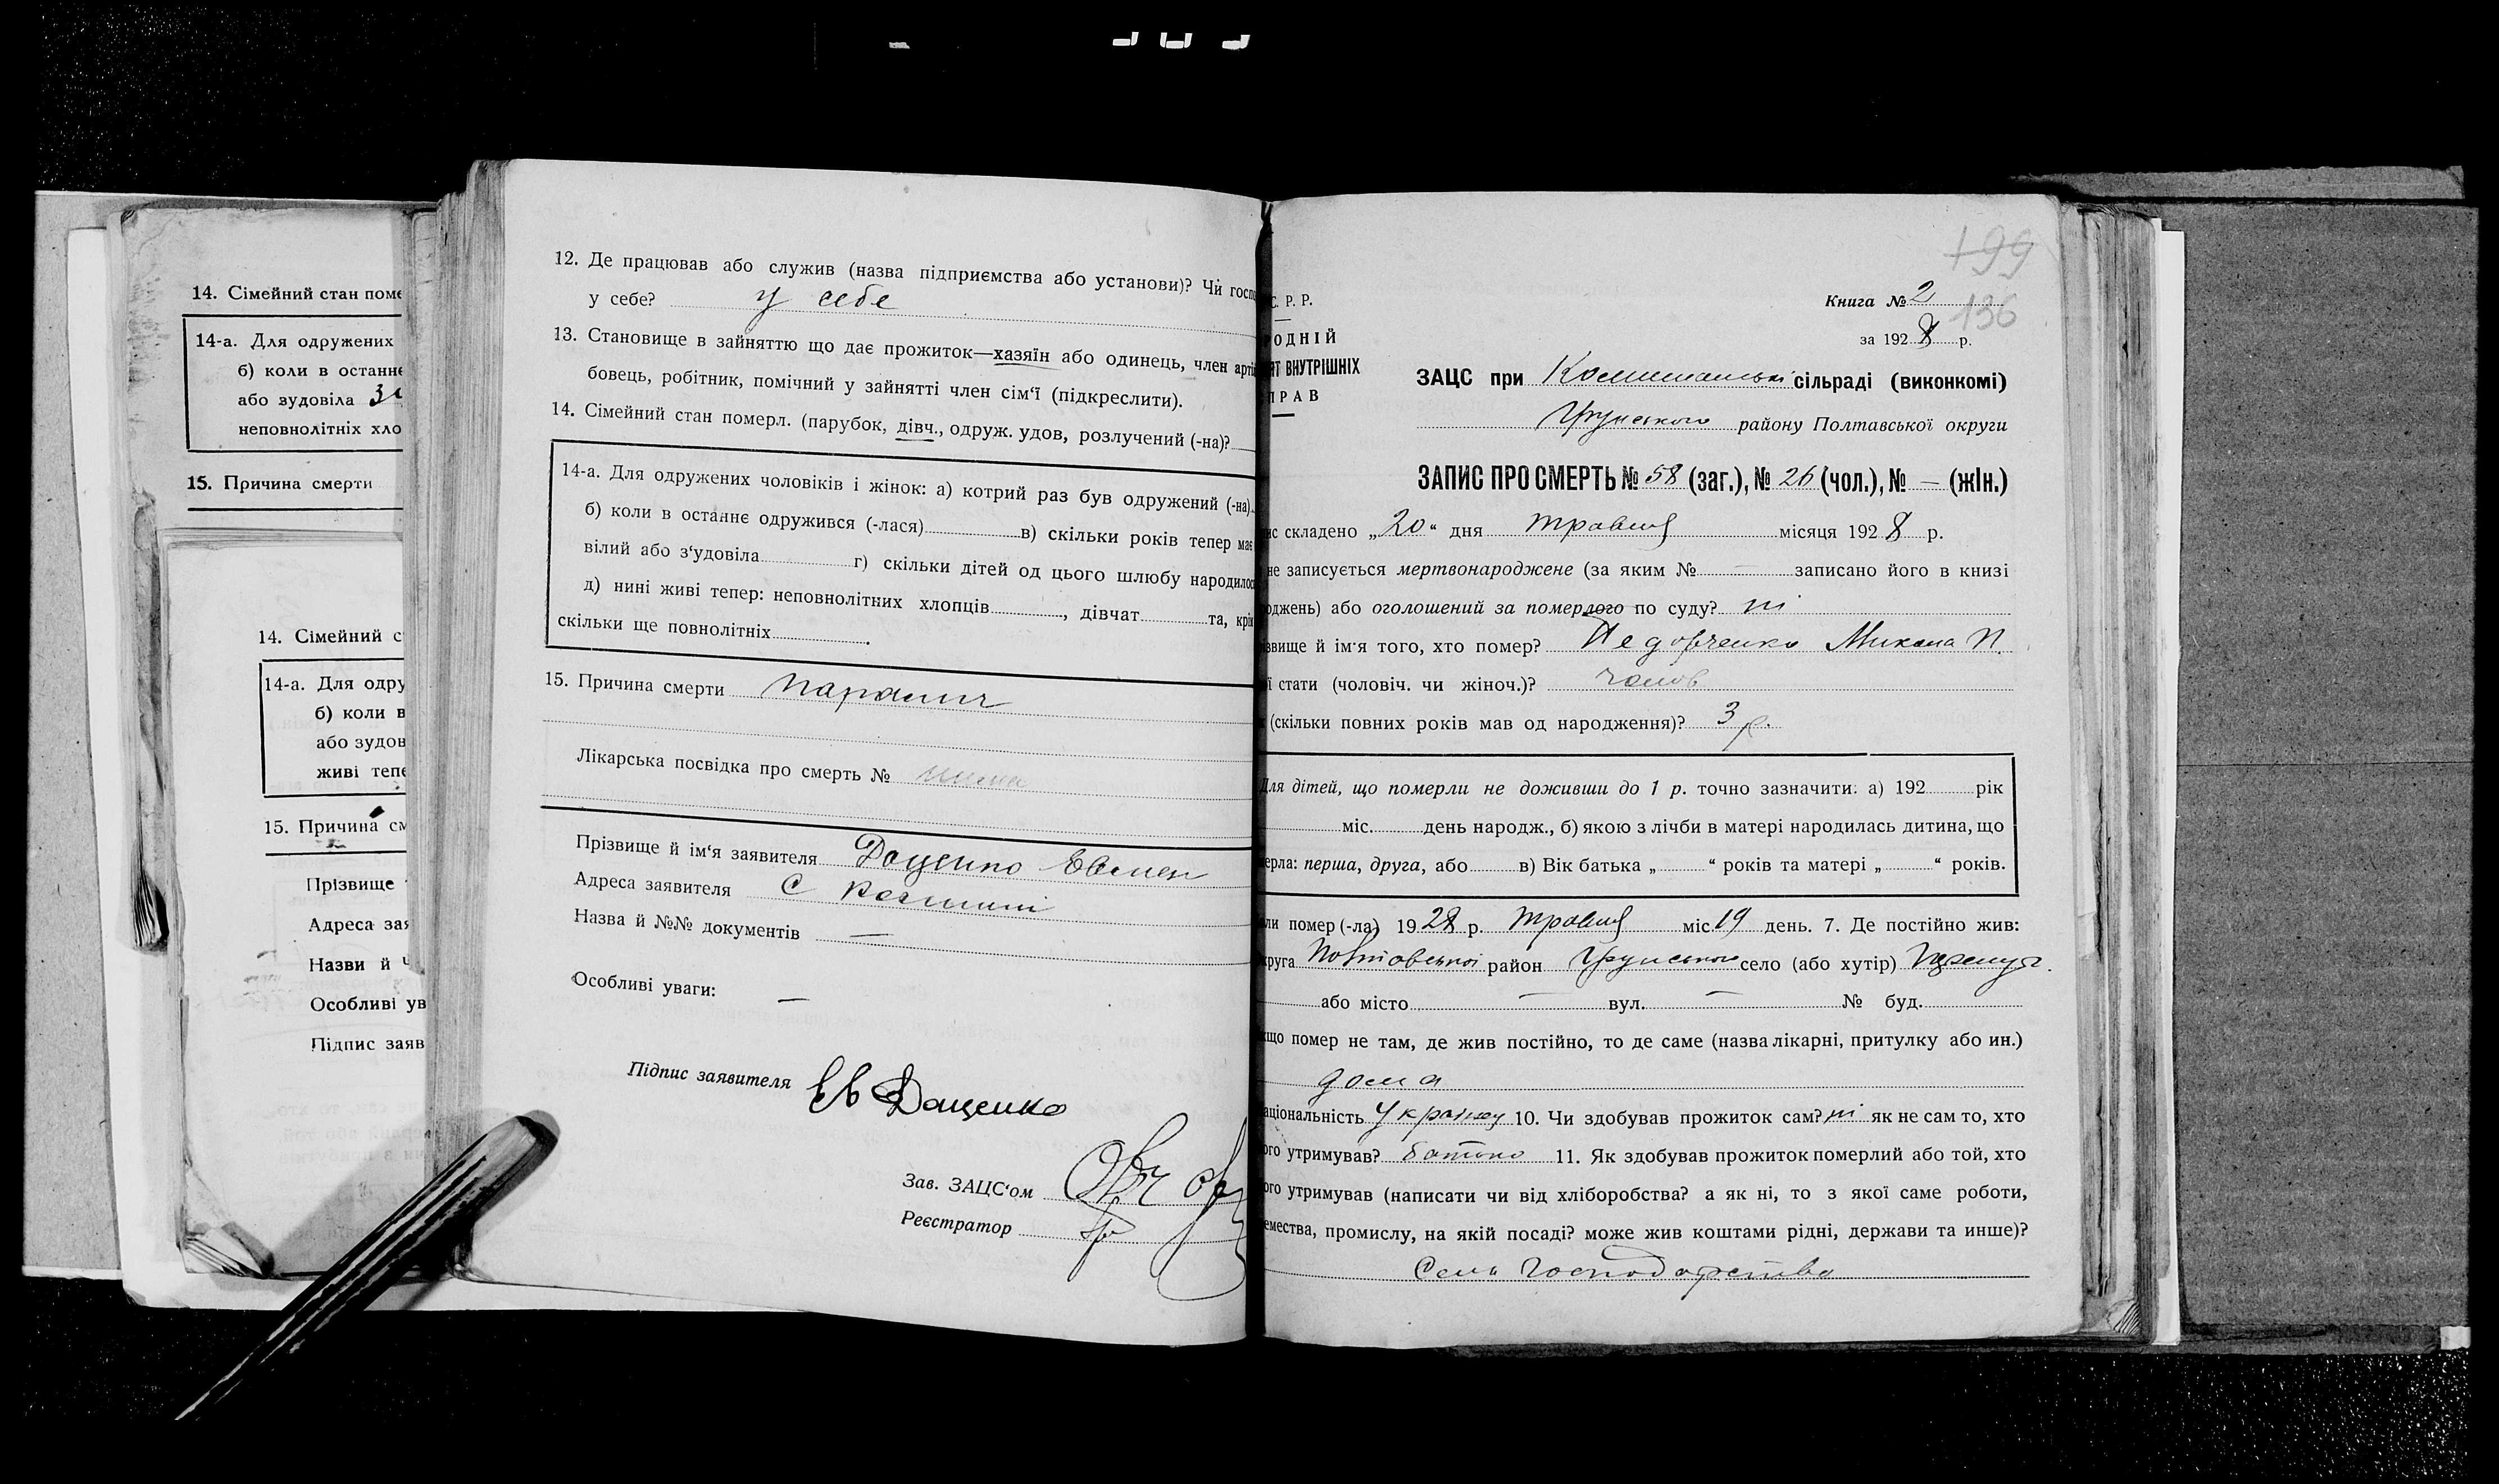 14. Сімейний стан поме
14-а. Для одружених
б) коли в останнє
або зудовіла
неповнолітніх хло
15. Причина смерти
14. Сімейний с
14-а. Для одру
б) коли в
або зудов
живі тепе
15. Причина см
Прізвище
Адреса зая
Назви й
Особливі ув
Підпис заяв
12. Де працював або служив (назва підприємства або установи)? Чи госп
у себе? у себе
13. Становище в зайняттю що дає прожиток—хазяїн або одинець, член арті
бовець, робітник, помічний у зайнятті член сім‘ї (підкреслити).
14. Сімейний стан померл. (парубок, дівч., одруж. удов, розлучений (-на)?
14-а. Для одружених чоловіків і жінок: а) котрий раз був одружений (-на)
б) коли в останнє одружився (-лася) в) скільки років тепер має
вілий або з‘удовіла г) скільки дітей од цього шлюбу народилос
д) нині живі тепер: неповнолітних хлопців, дівчат та, крім
скільки ще повнолітніх.
15. Причина смерти параліч
Лікарська посвідка про смерть № нима
Прізвище й ім‘я заявителя Доценко Евмен
Адреса заявителя С
Назва й №№ документів —
Особливі уваги: —
Підпис заявителя Ев Доценко
Зав. ЗАЦС‘ом
Реєстратор
199
Книга № 2
136
за 1928 р.
С. Р. Р.
РОДНІЙ
ЯТ ВНУТРІШНІХ
ПРАВ
ЗАЦС при сільраді (виконкомі)
Грунського району Полтавської округи
ЗАПИС ПРО СМЕРТЬ № 58 (заг.), № 26 (чол.), № — (жін.)
ис складено „20“ дня травня місяця 1928 р.
не записується мертвонароджене (за яким № — записано його в книзі
оджень) або оголошений за померлого по суду? ні
ізвище й ім‘я того, хто помер? Федорченко Микола П.
ї стати (чоловіч. чи жіноч.)? чолов
(скільки повних років мав од народження)? 3 р.
Для дітей, що померли не доживши до 1 р. точно зазначити: а) 192 рік
міс. день народж., б) якою з лічби в матері народилась дитина, що
ерла: перша, друга, або в) Вік батька „ “ років та матері „ “ років.
ли помер (-ла) 1928 р. травня міс 19 день. 7. Де постійно жив:
круга Полтавської район Грунського село (або хутір)
або місто — вул. — № буд.
кщо помер не там, де жив постійно, то де саме (назва лікарні, притулку або ин.)
дома
аціональність Українец 10. Чи здобував прожиток сам? ні як не сам то, хто
ого утримував? батько 11. Як здобував прожиток померлий або той, хто
ого утримував (написати чи від хліборобства? а як ні, то з якої саме роботи,
емества, промислу, на якій посаді? може жив коштами рідні, держави та инше)?
Сель господарство